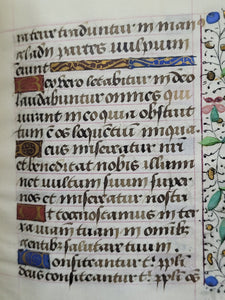 ra terre traduntur in man9
gladii partes vulpium
erunt
Rex vero letabitur in deo
laudabuntur omnes qui
iurant in eo quia obstruc
tum e os loquentium iniqua
Deus misereatur nri
et benedicat nobis illumi
net vultum suum super
nos et misereatur nostri
Ut cognoscamus in ter
ra viam tuam in omnibz
gentibz salutare tuum
Confiteantur t ppli
deus confiteantur t ppli oes